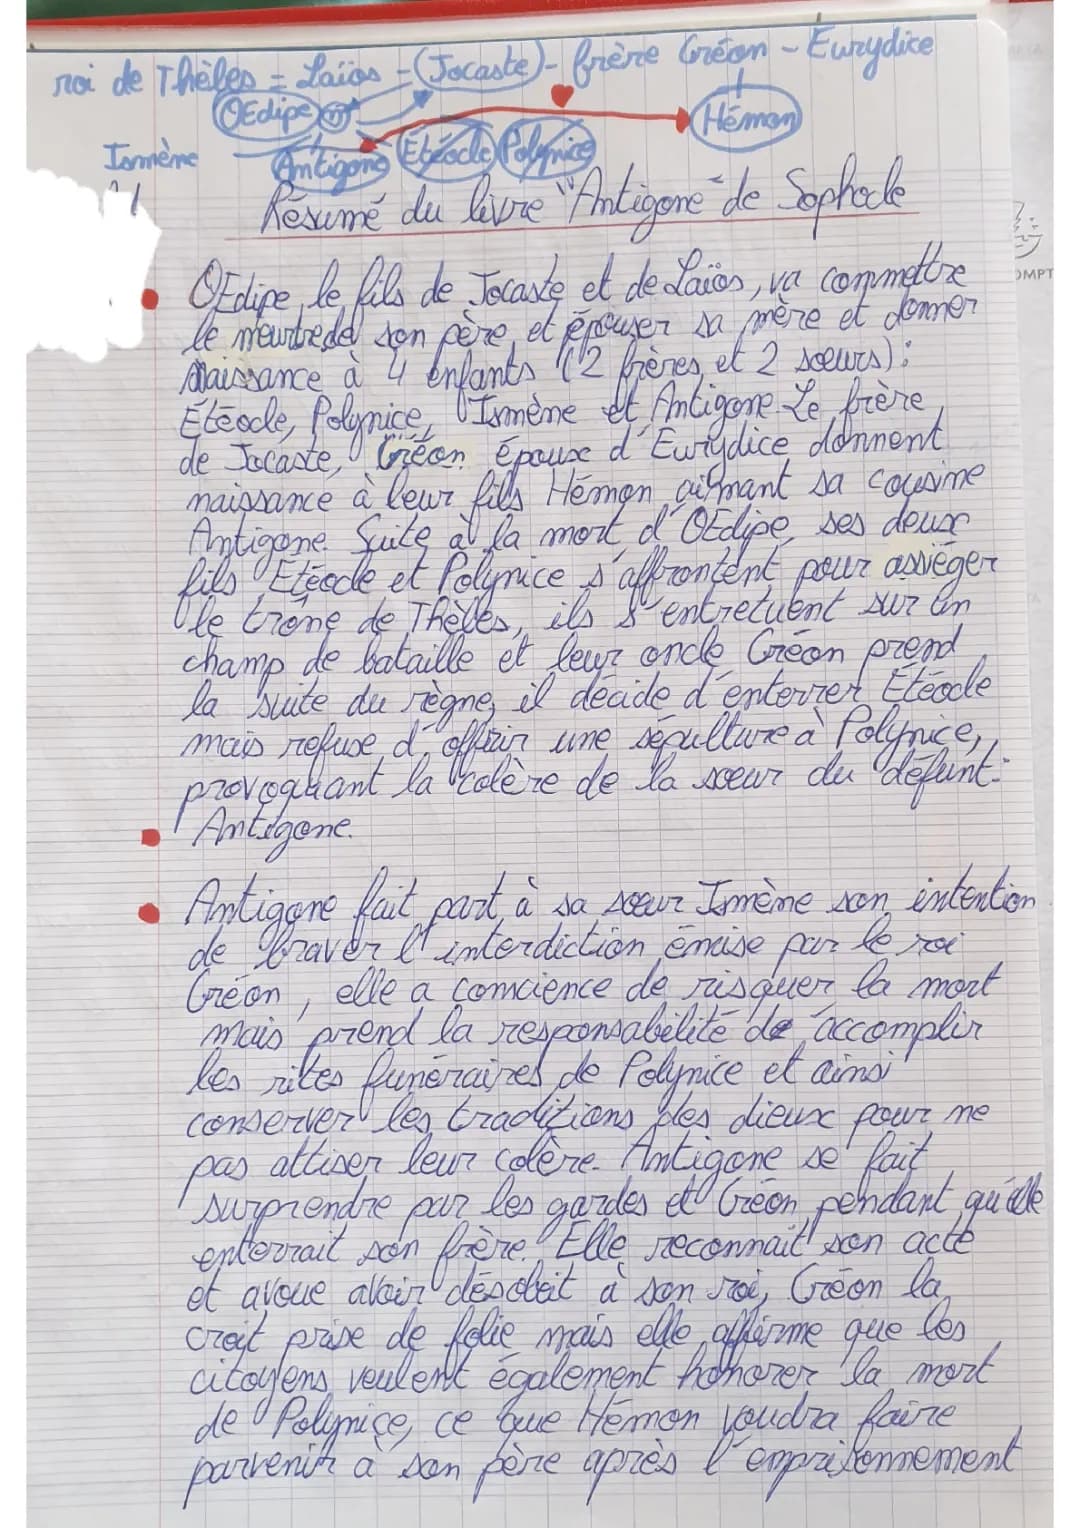 roi de Thèbes = Laïos - (Jocaste) - frère Créon - Eurydice
OEdipe
Hémon
Ismène
Antigone Étéocle Polynice
Résumé du livre "Antigone" de Sophocle
OEdipe, le fils de Jocaste et de Laïos, va commettre
le meurtre de son père, et épouser sa mère et donner
naissance à 4 enfants (2 frères et 2 soeurs):
Étéocle, Polynice, Ismène et Antigone. Le frère
de Jocaste, Créon époux d'Eurydice donnent
naissance à leur fils Hémon aimant sa cousine
Antigone. Suite à la mort d'OEdipe, ses deux
fils Étéocle et Polynice s'affrontent pour assiéger
le trône de Thèbes, ils s'entretuent sur un
champ de bataille et leur oncle Créon prend
la suite du règne, il décide d'enterrer Étéocle
mais refuse d'offrir une sépulture à Polynice,
provoquant la colère de la soeur du défunt:
Antigone.
Antigone fait part à sa soeur Ismène son intention
de braver l'interdiction émise par le roi
Créon, elle a comcience de risquer la mort
mais prend la responsabilité de accomplir
les rites funéraires de Polynice et ainsi
conserver les traditions des dieux pour ne
pas attiser leur colère. Antigone se fait
surprendre par les gardes et Créon pendant qu'elle
enterrait son frère. Elle reconnait son acte
et avoue avoir désobéit à son roi, Créon la
croit prise de folie mais elle affirme que les
citoyens veulent également honorer la mort
de Polynice, ce que Hémon voudra faire
parvenir à son père après l'emprisonnement